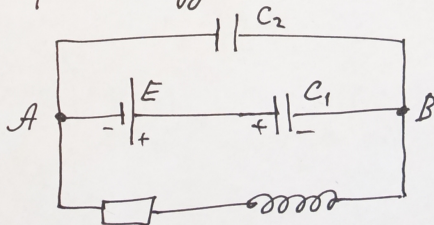 C₂
A - E + + C₁ - B